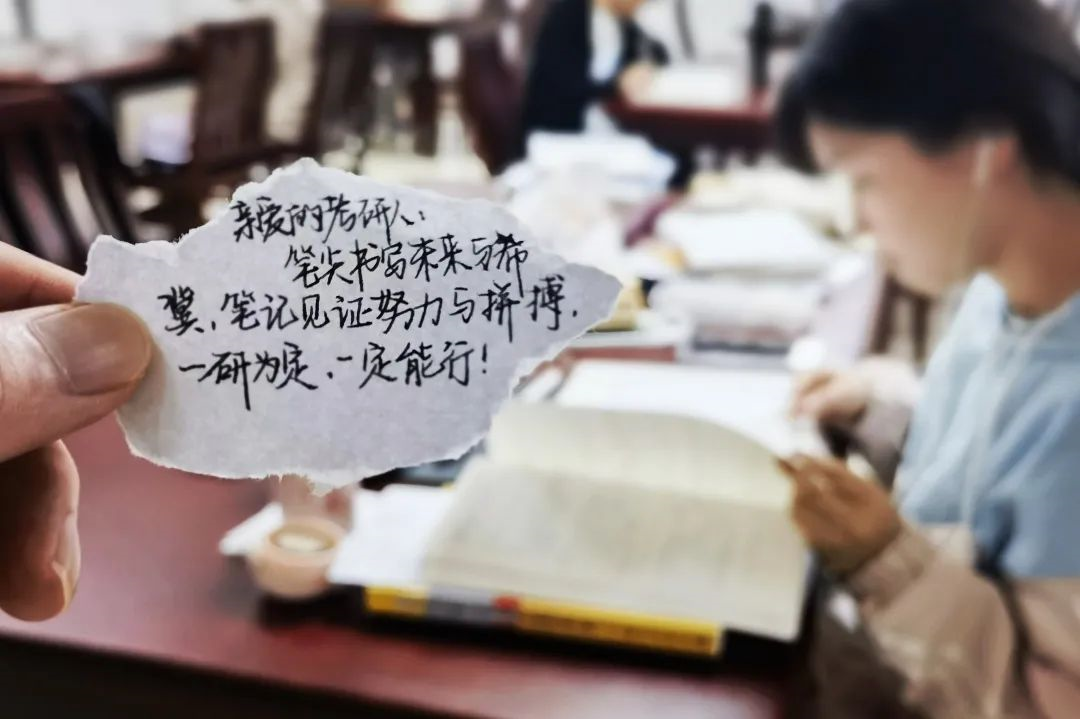 亲爱的考研人：
笔尖书写未来与希
冀，笔记见证努力与拼搏，
一研为定，一定能行！